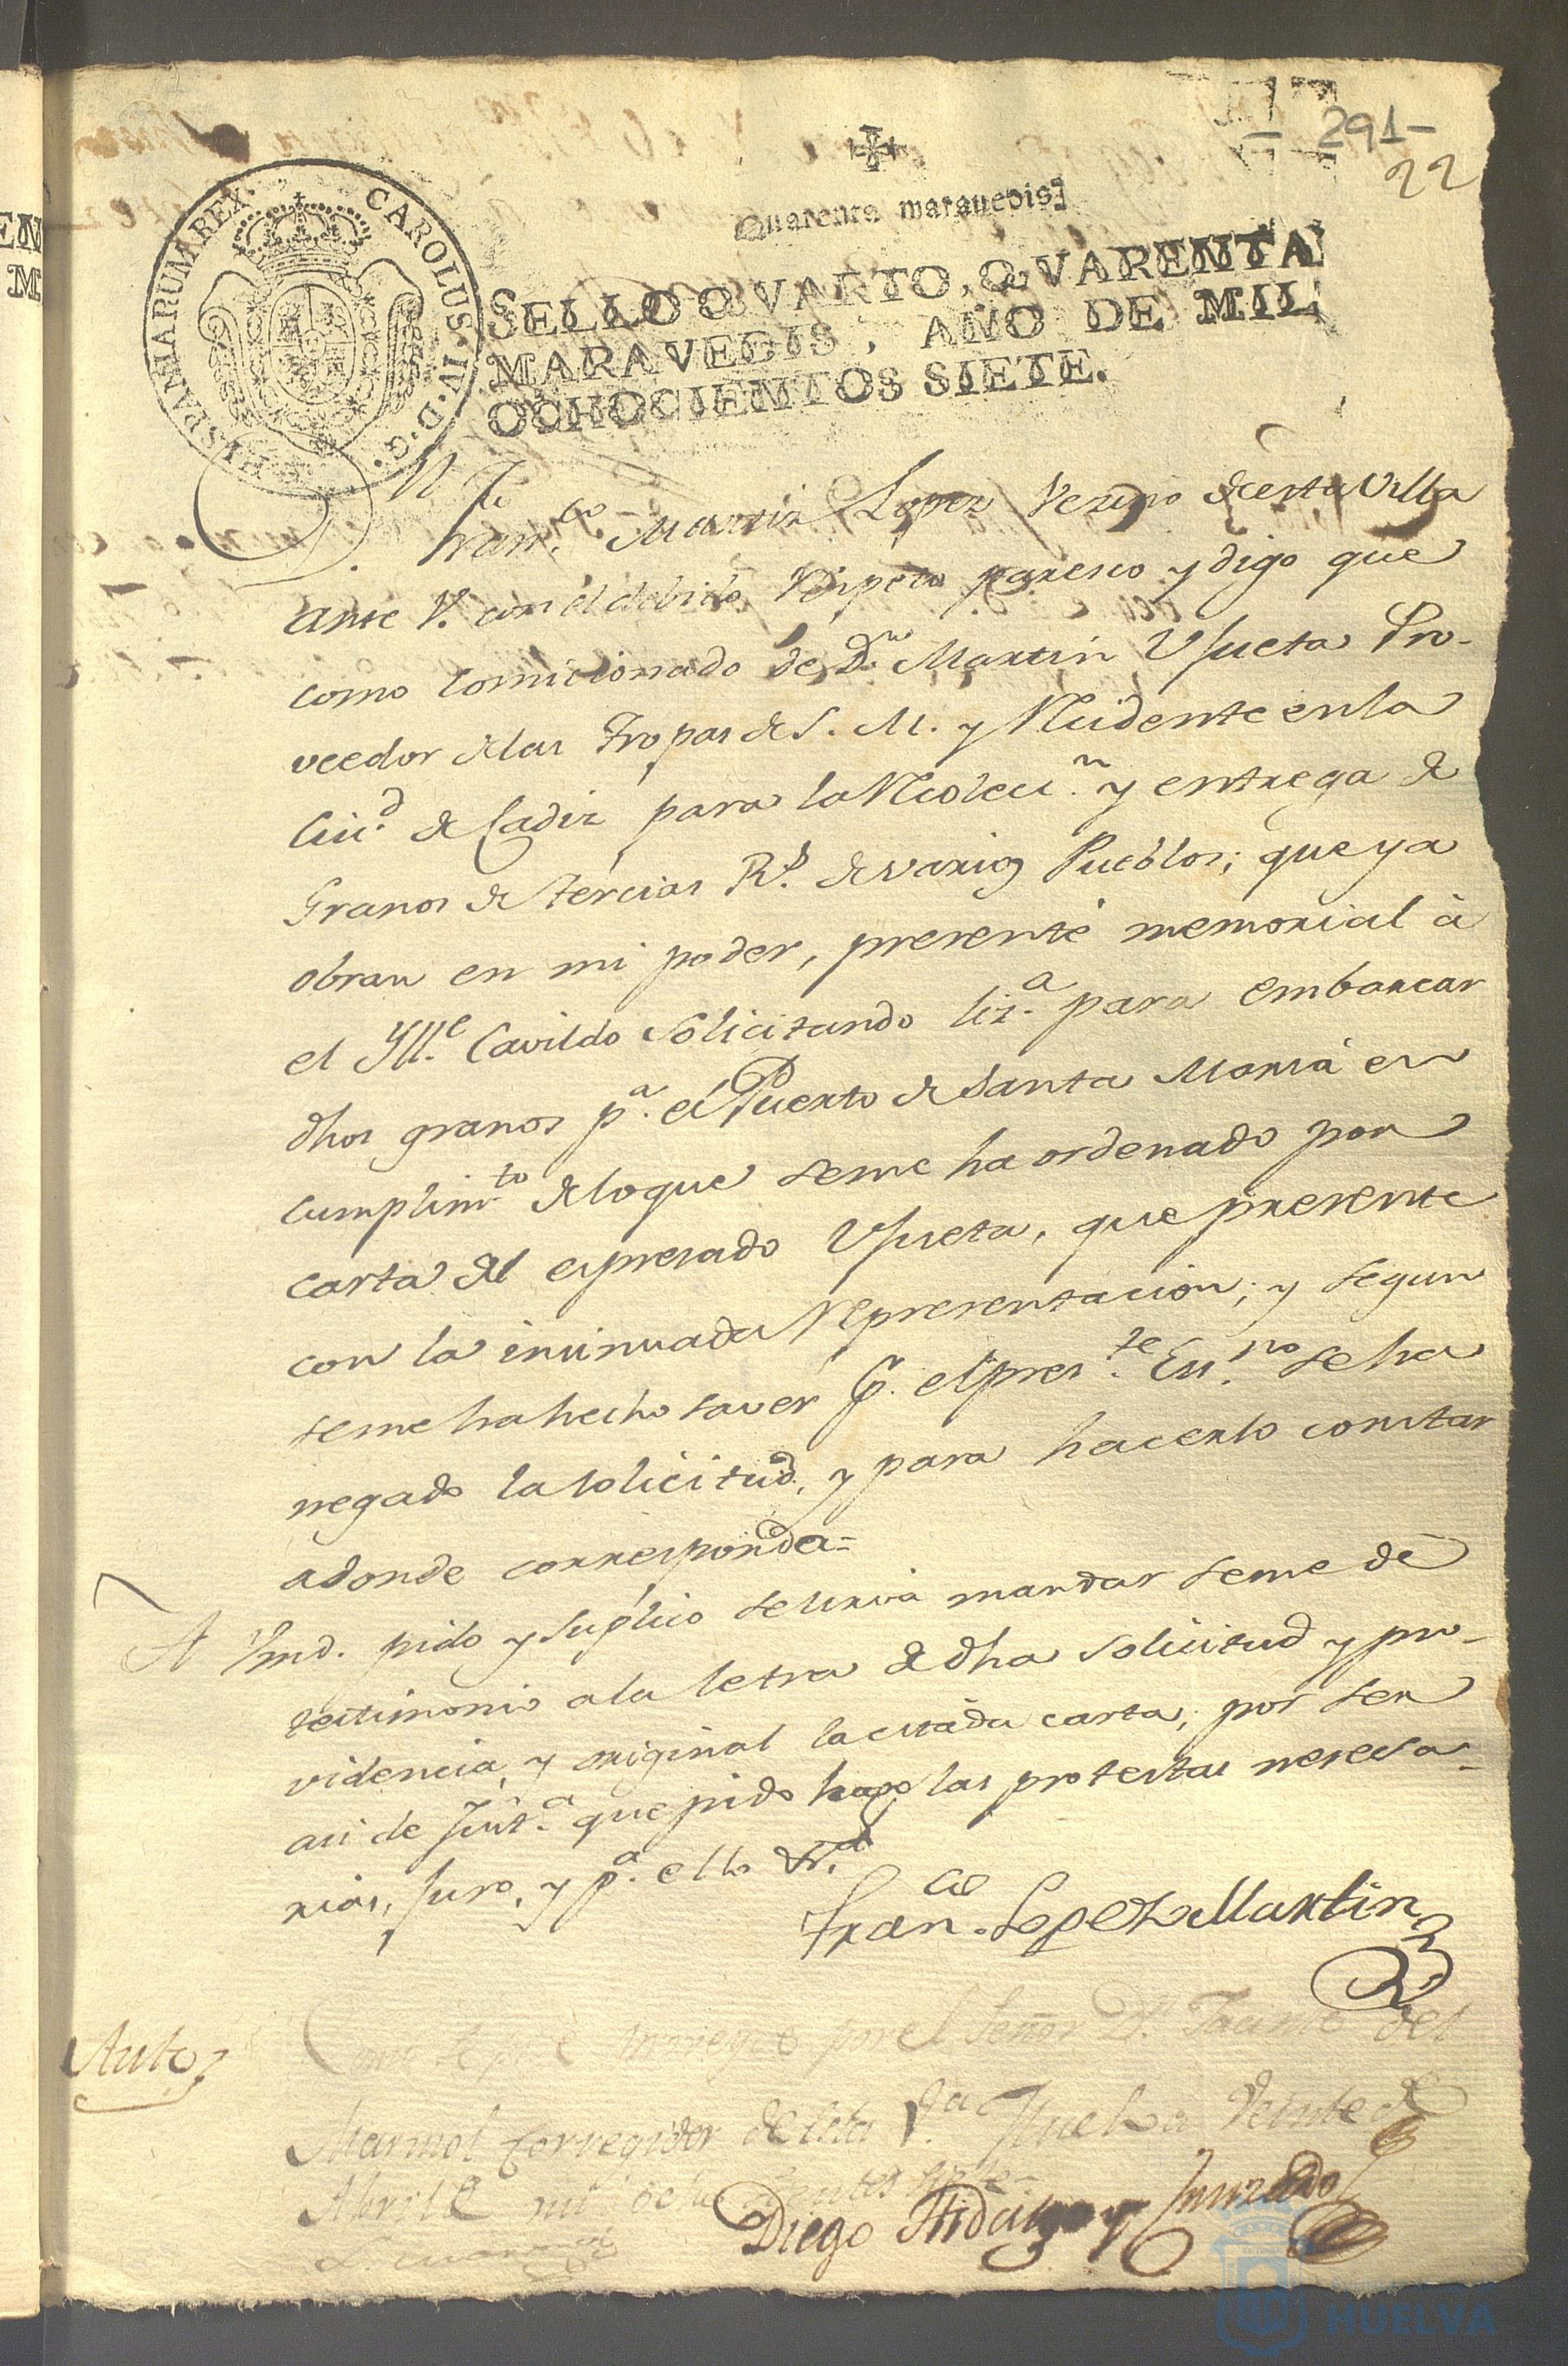 291-
22
Quarenta marauedis
SELLO QVARTO, QVARENTA
MARAVEDIS, AÑO DE MIL
OCHOCIENTOS SIETE.
CAROLUS·IV·D·G· HISPANIARUM REX
Dn Franco Martin Lopez Vezino de esta Villa
ante V. con el debido respeto paresco y digo que
como Comicionado de Dn Martin Usueta Pro-
veedor de las Tropas de S. M. y Recidente en la
Ciud de Cadiz para la Recolecn y entrega de
Granos de tercias Rs de varios Pueblos; que ya
obran en mi poder, presenté memorial à
el Ylle Cavildo solicitando liza para embarcar
dhos granos pa el Puerto de Santa Maria en
cumplimto de loque seme ha ordenado por
carta del espresado Usueta, que presente
con la insinuada representacion; y segun
seme ha hecho saver pr el preste Essno se ha
negado la solicitud, y para hacerlo constar
adonde corresponda=
A Vmd. pido y suplico se sirva mandar seme dé
testimonio a la letra de dha solicitud y pro-
videncia, y original la citada carta, por ser
asi de Justa que pido hago las protestas necesa-
rias, Juro, y pa ello &a
Franco Lopez Martin
Auto
Como se pide proveyo por el Señor Dn Jacinto del
Marmol Corregidor de esta Va Huelva Veinte de
Abril de mil ochocientos siete=
Diego Hidalgo y Jurado
HUELVA